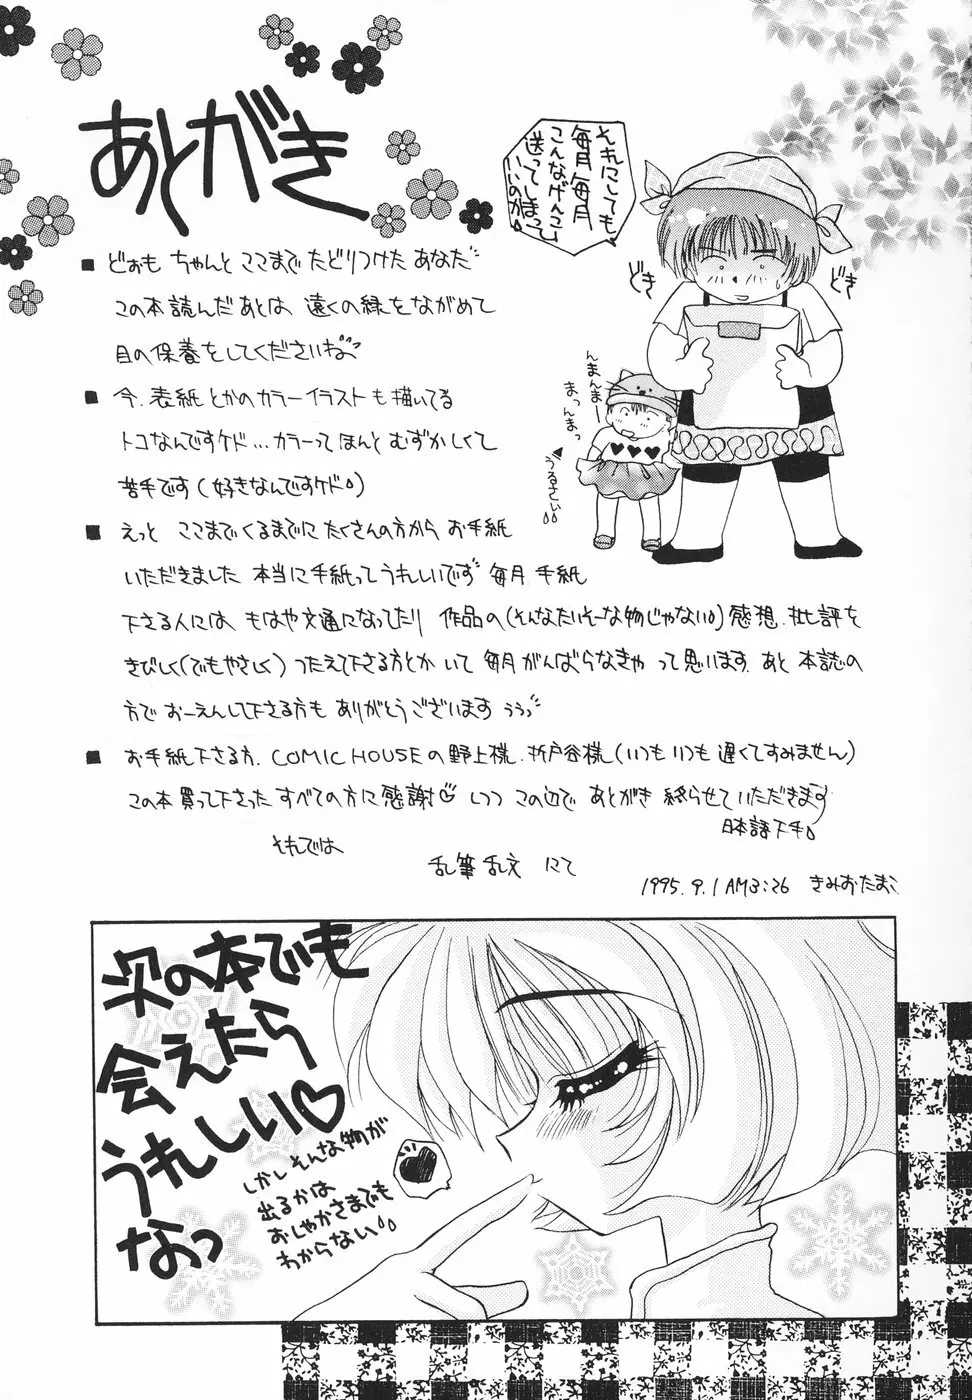 あとがき
それにしても
毎月毎月
こんなげんこ
送ってしまって
いいのか
どき
どき
んまんまー
まっんまっ
うるさい
■どぉも ちゃんと ここまで たどりつけた あなた
この本読んだあとは、遠くの緑をながめて
目の保養をしてくださいね
■今、表紙とかのカラーイラストも描いてる
トコなんですケド…カラーって ほんと むずかしくて
苦手です(好きなんですケド)
■えっと ここまでくるまでに たくさんの方から お手紙
いただきました 本当に手紙って うれしいです 毎月 手紙
下さる人には、もはや文通になってたり 作品の(そんなたいそーな物じゃない)感想、批評を
きびしく(でもやさしく) つたえて下さる方とか いて 毎月がんばらなきゃ って思います。あと 本誌の
方で おーえんして下さる方も ありがとうございます ううっ
■お手紙下さる方、COMIC HOUSEの野上様、折戸谷様(いつも いつも 遅くてすみません)
この本 買って下さった すべての方に感謝♡しつつ この辺で あとがき 終らせていただきます
日本語下手
それでは
乱筆乱文 にて
1995.9.1 AM3:26 きみおたまこ
次の本でも
会えたら
うれしい♡
なっ
しかしそんな物が
出るかは
おしゃかさまでも
わからない